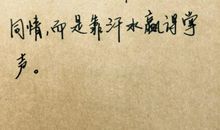 同情,而是靠汗水赢得掌
声。